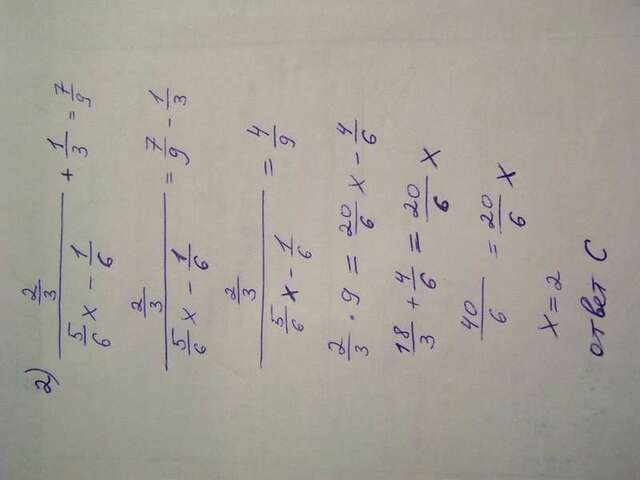 2) \frac{\frac{2}{3}}{\frac{5}{6}x - \frac{1}{6}} + \frac{1}{3} = \frac{7}{9}
\frac{\frac{2}{3}}{\frac{5}{6}x - \frac{1}{6}} = \frac{7}{9} - \frac{1}{3}
\frac{\frac{2}{3}}{\frac{5}{6}x - \frac{1}{6}} = \frac{4}{9}
\frac{2}{3} \cdot 9 = \frac{20}{6}x - \frac{4}{6}
\frac{18}{3} + \frac{4}{6} = \frac{20}{6}x
\frac{40}{6} = \frac{20}{6}x
x = 2
ответ С